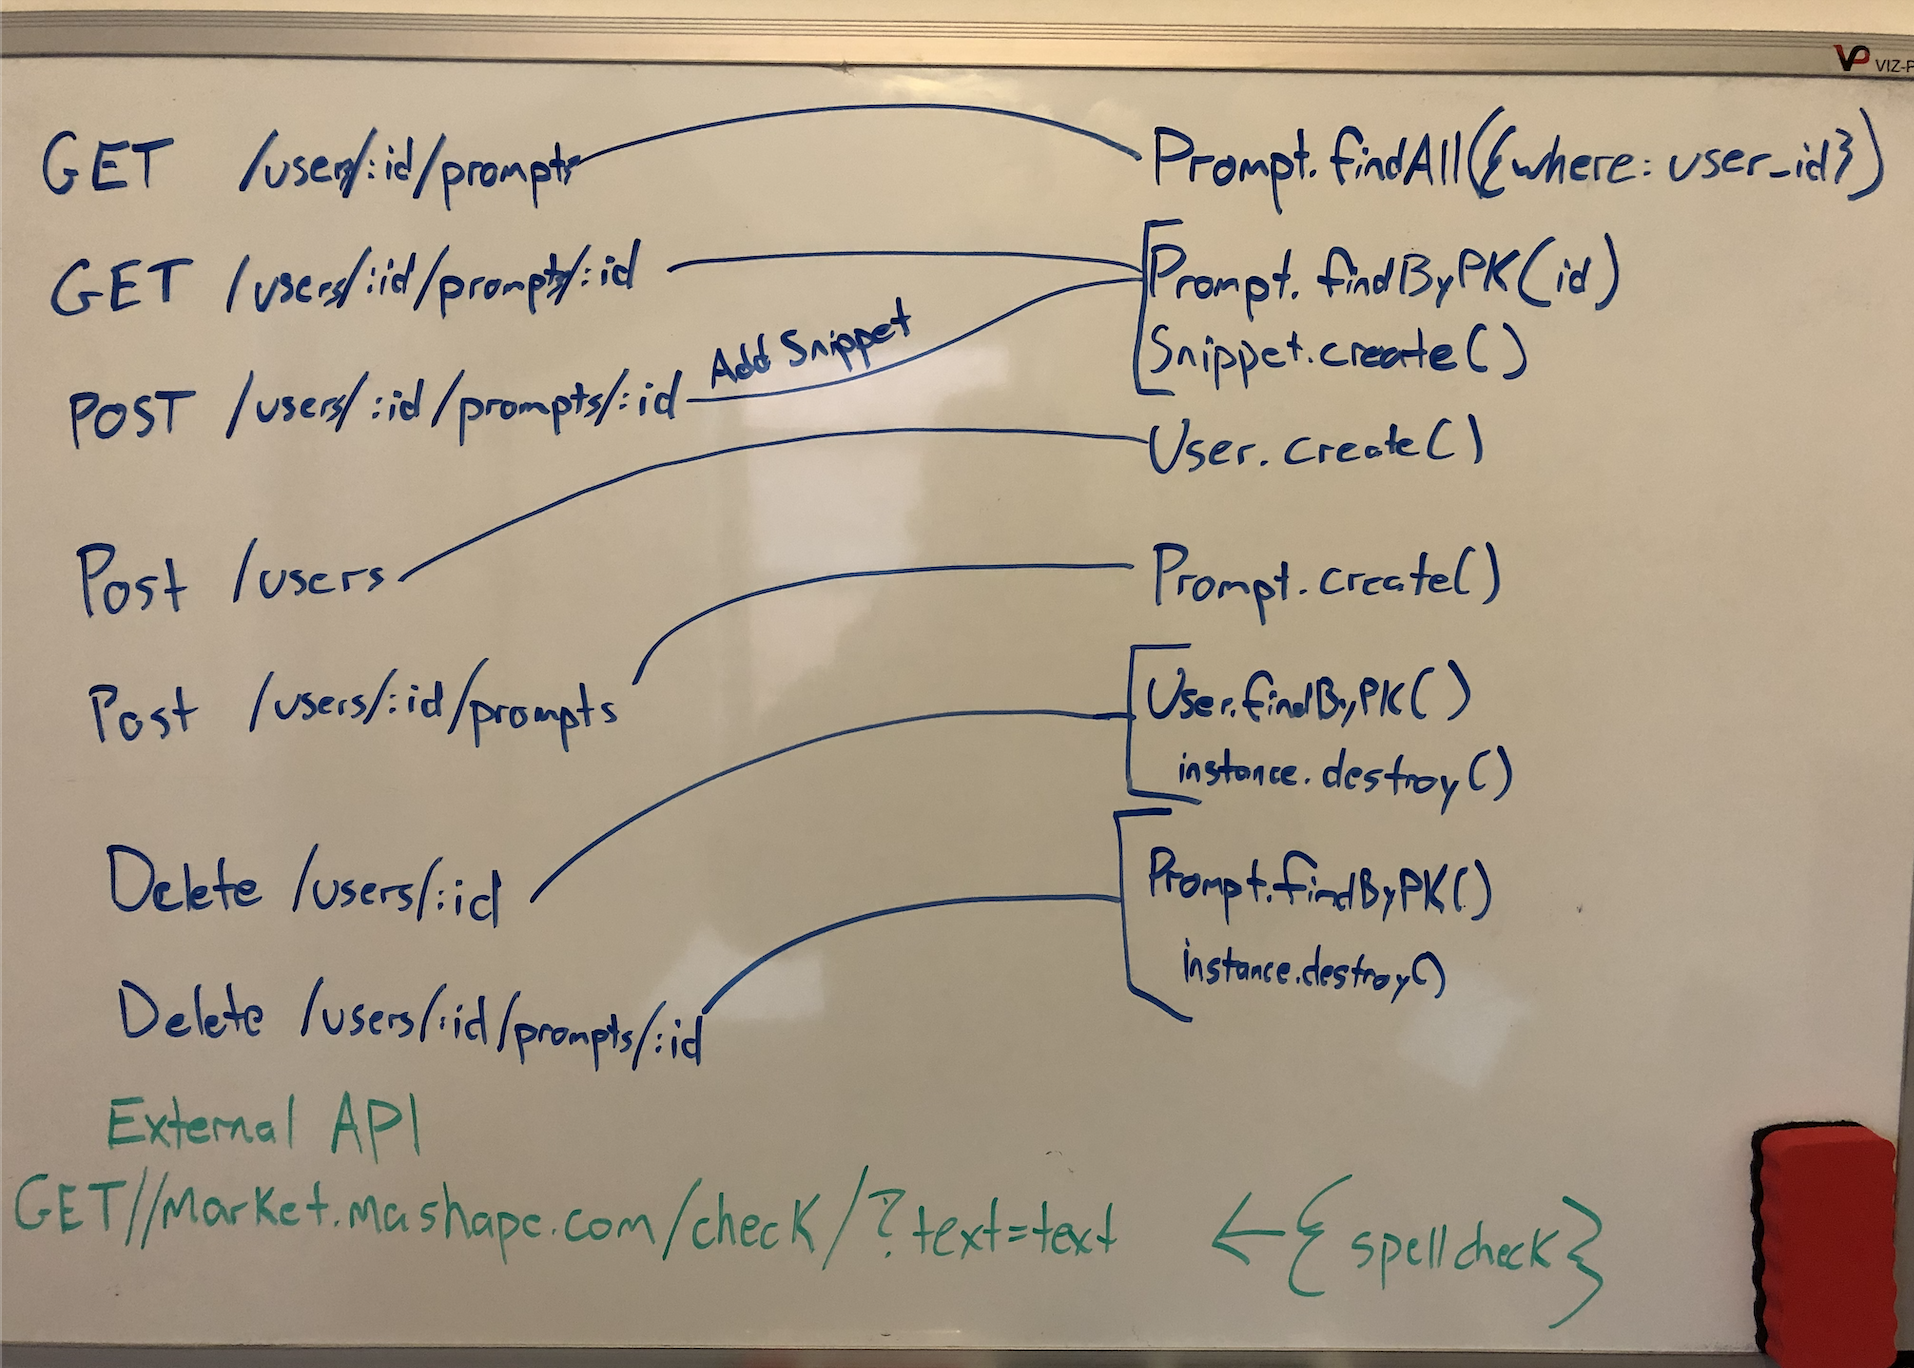 VP VIZ-P
GET /users/:id/prompts Prompt.findAll({where: user_id})
GET /users/:id/prompts/:id Prompt.findByPK(id)
Add Snippet
Snippet.create()
POST /users/:id/prompts/:id
User.create()
Post /users Prompt.create()
Post /users/:id/prompts User.findByPK()
instance.destroy()
Delete /users/:id Prompt.findByPK()
instance.destroy()
Delete /users/:id/prompts/:id
External API
GET//market.mashape.com/check/?text=text ← {spellcheck}